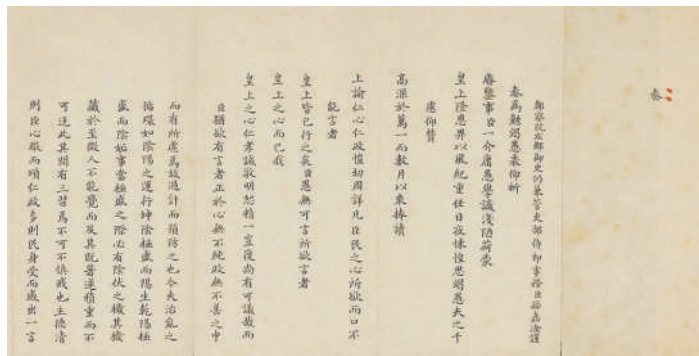 奏
都察院左都御史仍兼管吏部侍郎事務臣孫嘉淦謹
奏為勉竭愚衷仰祈
睿鑒事臣一介庸愚學識淺陋荷蒙
皇上隆恩畀以風紀重任日夜悚惶思竭愚夫之千
慮仰贊
高深於萬一而數月以來捧讀
上諭仁心仁政愷切周詳凡臣民之心所欲而口不
能言者
皇上皆已行之矣臣愚無可言所欲言者
皇上之心而已我
皇上之心仁孝誠敬明恕精一豈復尚有可議哉而
臣猶欲有言者正於心無不純政無不善之中
而有所慮焉故過計而預防之也今夫治亂之
循環如陰陽之運行坤陰極盛而陽生乾陽極
盛而陰姤事當極盛之際必有陰伏之機其機
藏於至微人不能覺而及其既著遂積重而不
可返此其間有三習焉不可不慎戒也主德清
則臣心服而頌仁政多則民身受而感出一言